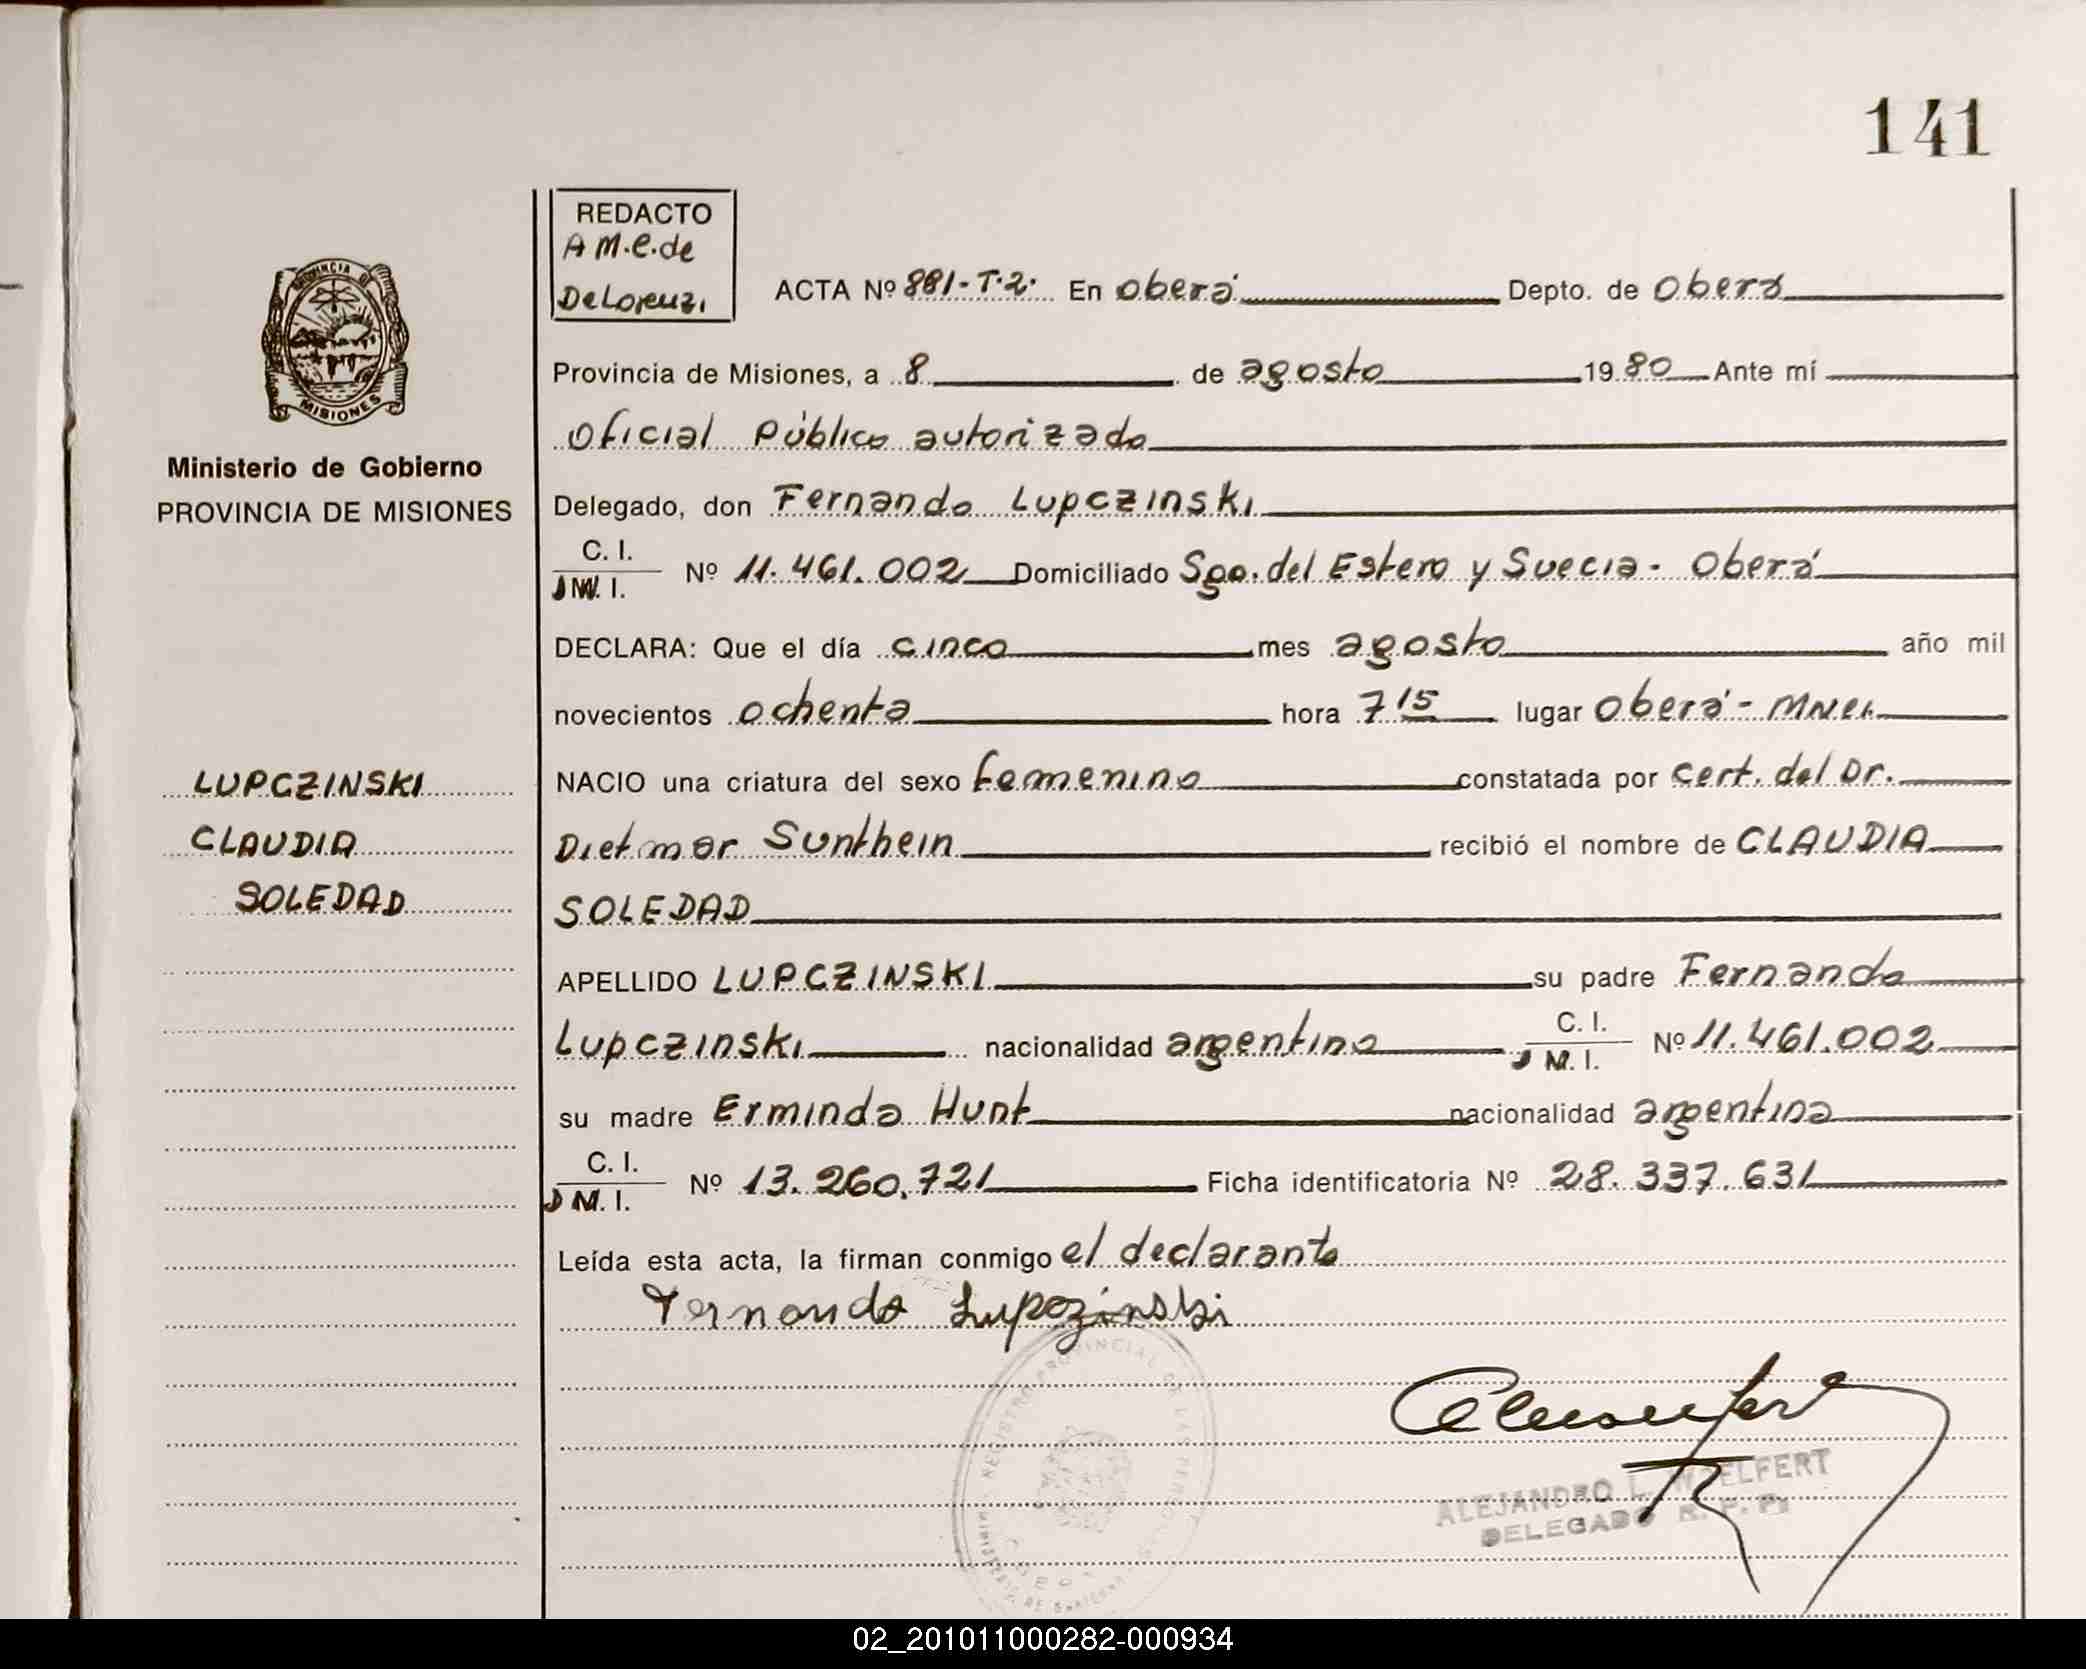 141
REDACTO
A M.C. de
DeLorenzi
ACTA Nº 881-T.2. En Oberá Depto. de Oberá
PROVINCIA DE
MISIONES
Provincia de Misiones, a 8 de agosto 1980 Ante mí
Oficial Público autorizado
Ministerio de Gobierno
PROVINCIA DE MISIONES
Delegado, don Fernando Lupczinski
C. I.
D M. I. Nº 11.461.002 Domiciliado Sgo. del Estero y Suecia - Oberá
DECLARA: Que el día cinco mes agosto año mil
novecientos ochenta hora 7 15 lugar Oberá - Mnes.
LUPCZINSKI
CLAUDIA
SOLEDAD
NACIO una criatura del sexo femenino constatada por cert. del Dr.
Dietmar Sunthein recibió el nombre de CLAUDIA
SOLEDAD
APELLIDO LUPCZINSKI su padre Fernando
Lupczinski nacionalidad argentina C. I.
D M. I. Nº 11.461.002
su madre Erminda Hunt nacionalidad argentina
C. I.
D M. I. Nº 13.260.721 Ficha identificatoria Nº 28.337.631
Leída esta acta, la firman conmigo el declarante
Fernando Lupczinski
REGISTRO PROVINCIAL DE LAS PERSONAS
ALEJANDRO L. WOELFERT
DELEGADO R. P. P.
02_201011000282-000934